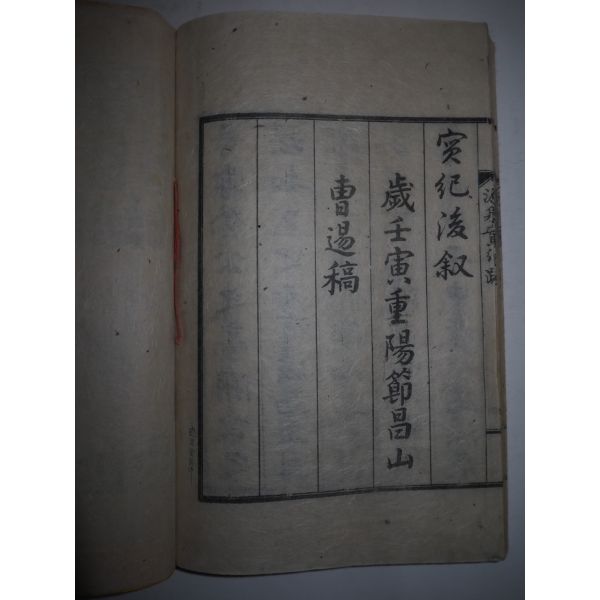 實紀後叙
歲壬寅重陽節昌山
曺逷稿